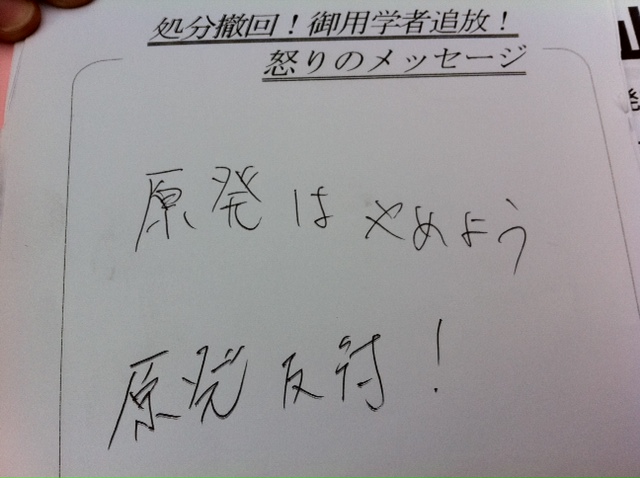 処分撤回！御用学者追放！
怒りのメッセージ
原発はやめよう
原発反対！